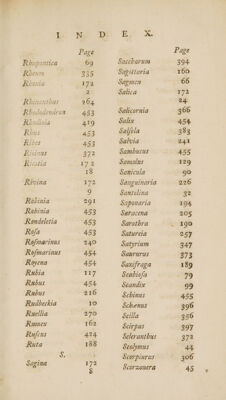 INDEX.
Page
Rhapontica 69
Rheum 335
172
2
Rhinanthus 264
Rhododendron 453
Rhodiola 419
Rhus 453
Ribes 453
Ricinus 372
172
18
Rivina 172
9
Robinia 291
Rubinia 453
Rondeletia 453
Rosa 453
Rosmarinus 240
Rosmarinus 454
Royena 454
Rubia 117
Rubus 454
Rubus 216
Rudbeckia 10
Ruellia 270
Rumex 162
Ruscus 424
Ruta 188
S.
Sagina 172
8
Page
Saccharum 394
Sagittaria 160
Sagmen 66
Salica 172
24
Salicornia 366
Salix 454
Salsola 383
Salvia 241
Sambucus 455
Samolus 129
Sanicula 90
Sanguinaria 226
Santolina 32
Saponaria 194
Saracena 205
Sarothra 190
Satureia 257
Satyrium 347
Saururus 373
Saxifraga 189
Scabiosa 79
Scandix 99
Schinus 455
Schœnus 396
Scilla 356
Scirpus 397
Scleranthus 372
Scolymus 44
Scorpiurus 306
Scorzonera 45